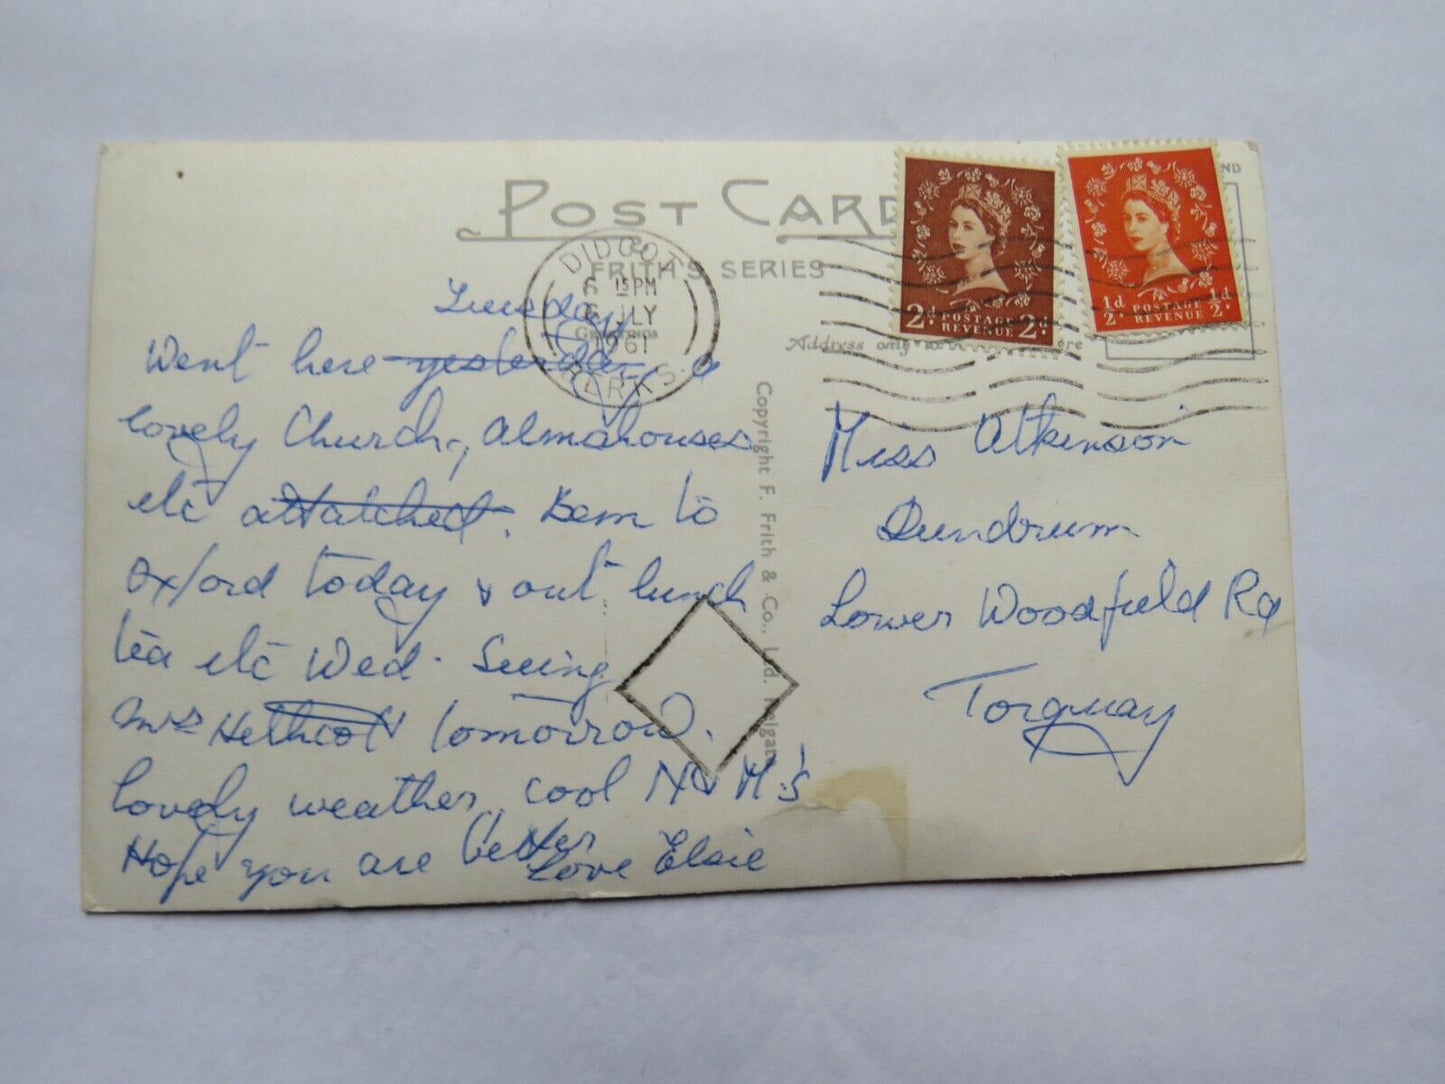 POST CARD
FRITH'S SERIES
DIDCOT
6 15 PM
6 JLY
1961
BERKS.
GREETINGS
Address only to ere
ND
2d POSTAGE REVENUE 2d
½d POSTAGE REVENUE ½d
Copyright F. Frith & Co., Ltd. Reigate
Tuesday
Went here yesterday a
lovely Church, Almshouses
etc attatched. Been to
Oxford today & out lunch
tea etc Wed. Seeing
Mrs tomorrow.
lovely weather, cool N & M's
Hope you are better
Love Elsie
Miss Atkinson
Dundrum
Lower Woodfield Rd
Torquay